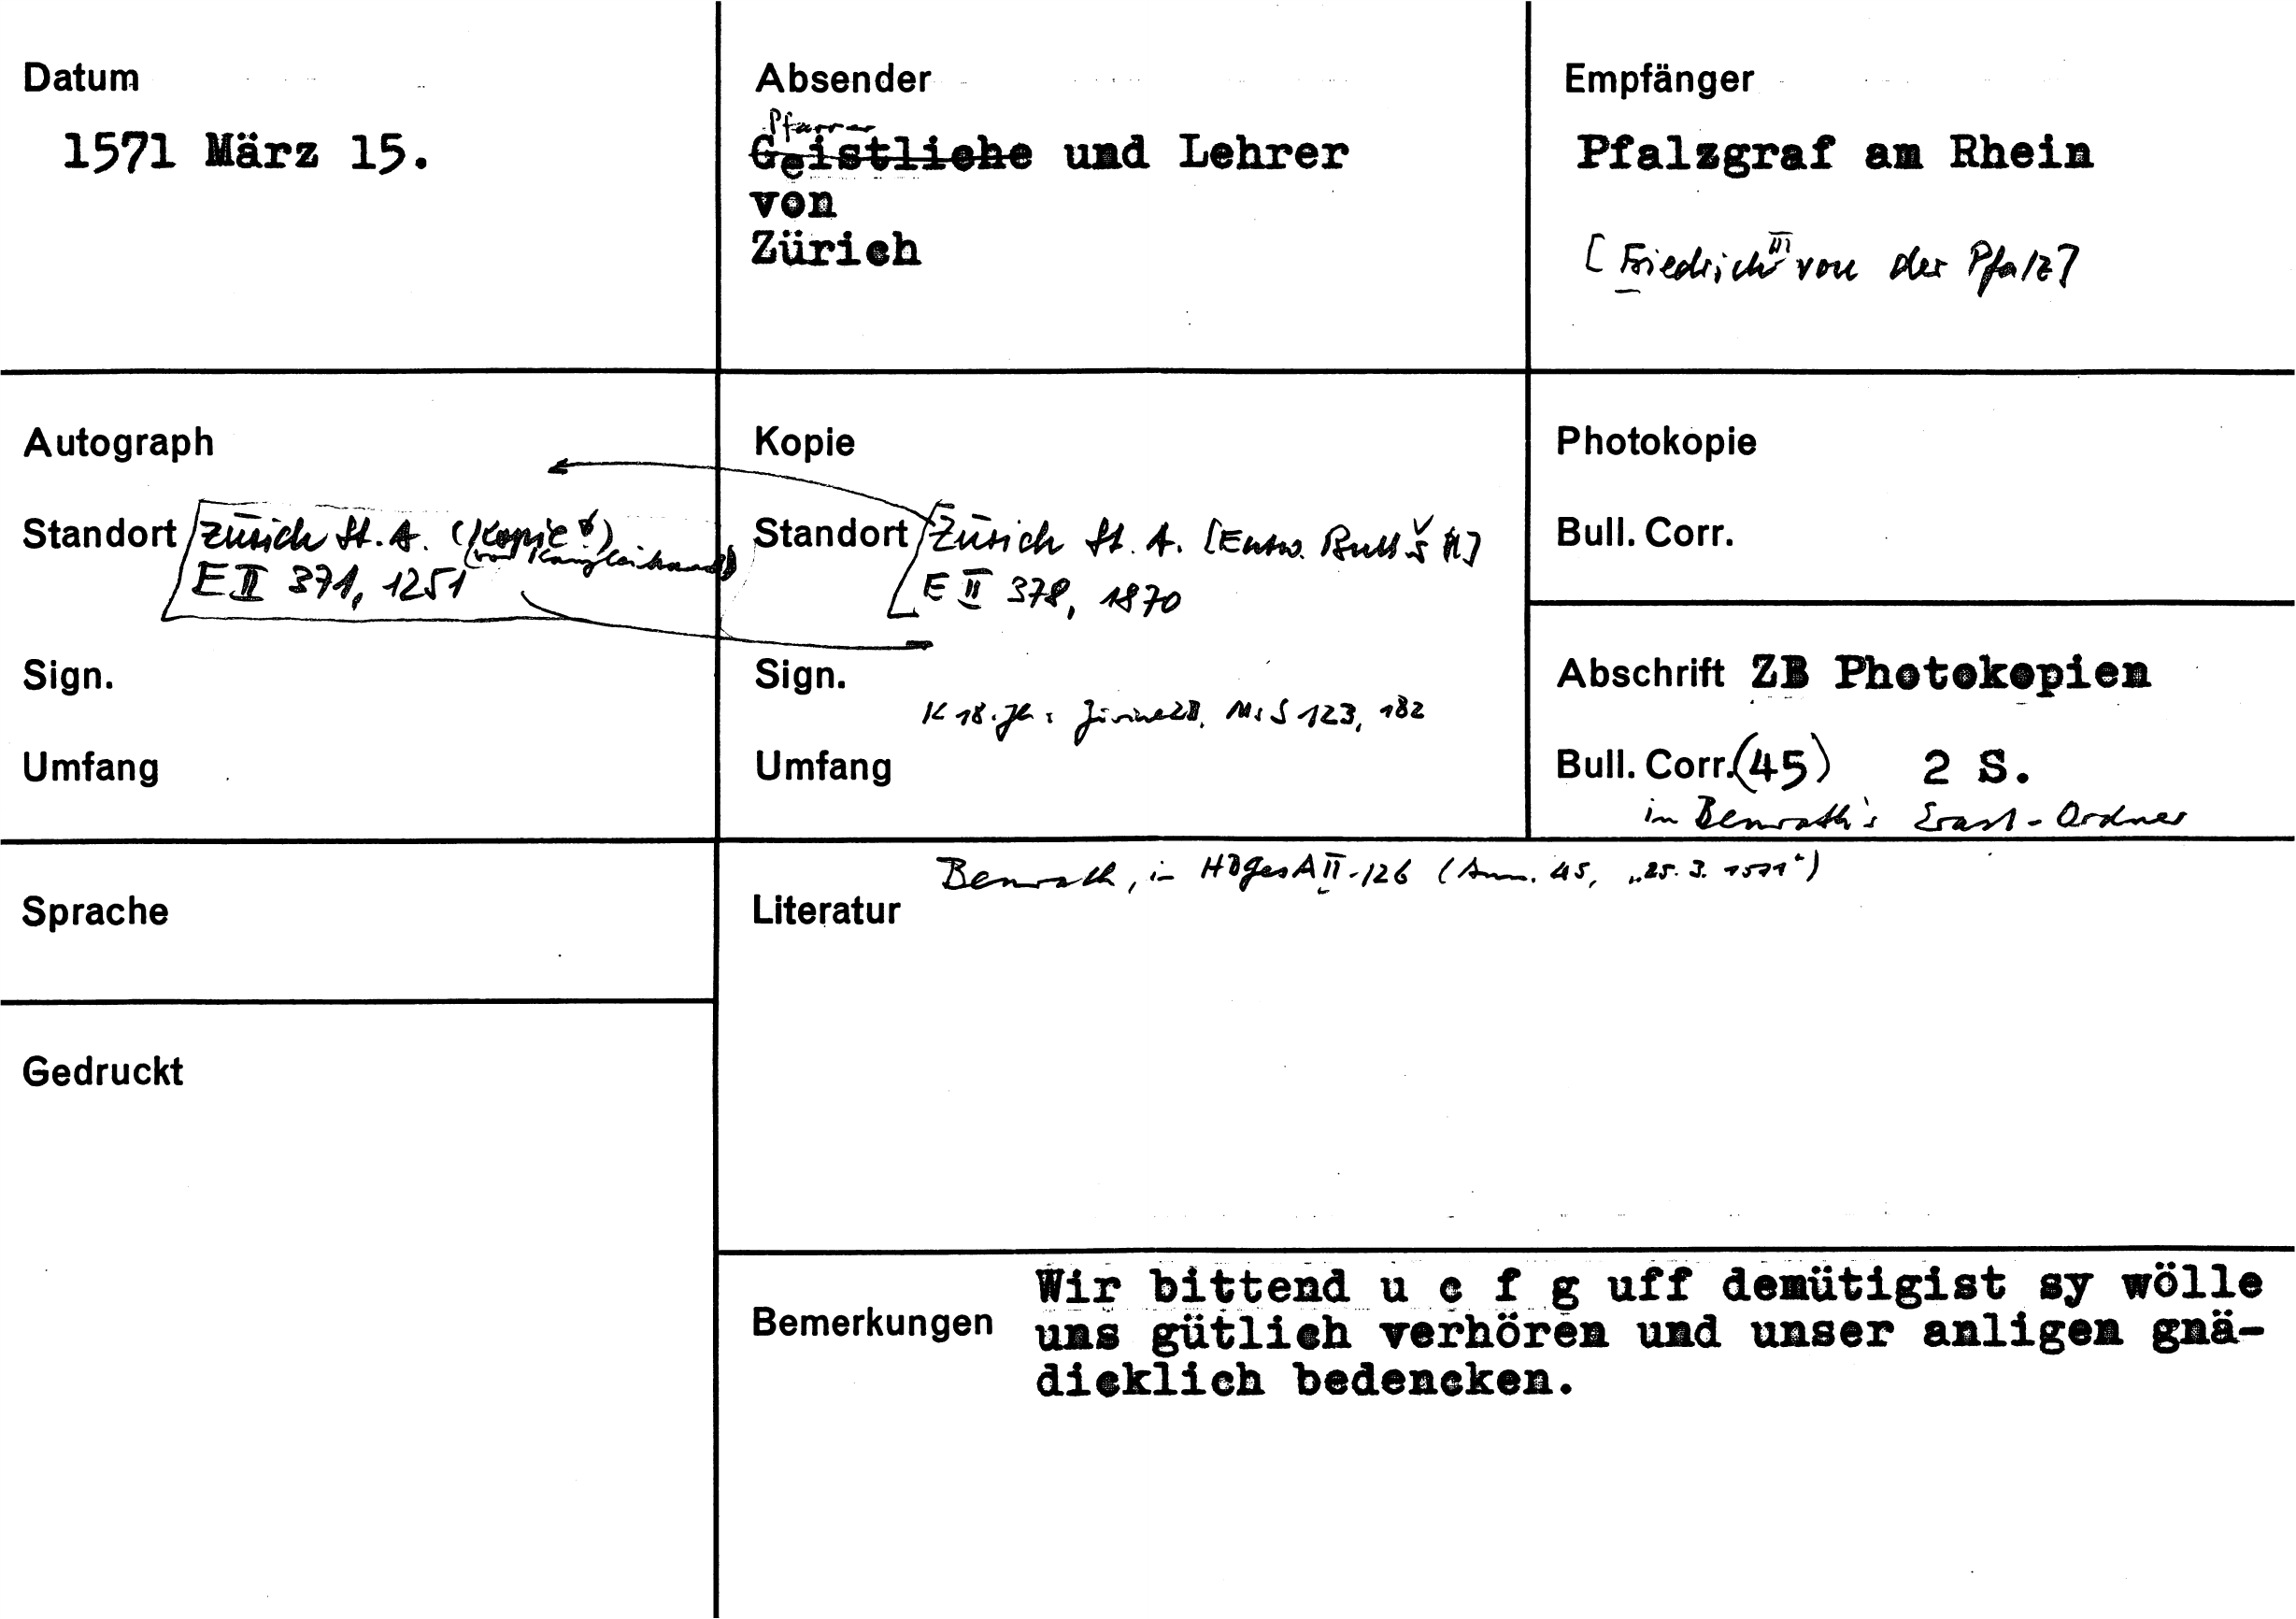 Datum
1571 März 15.
Absender
Pfarrer
Geistliche und Lehrer
von
Zürich
Empfänger
Pfalzgraf am Rhein
[Friedrich III von der Pfalz]
Autograph
Standort Zürich St. A. (Kopie)
(von Kanzleihand)
E II 371, 1251
Sign.
Umfang
Kopie
Standort [Zürich St. A. [Entw. Bull's]
E II 378, 1870
Sign.
K 18. Jh.: Zürich ZB, Ms S 123, 182
Umfang
Photokopie
Bull. Corr.
Abschrift ZB Photokopien
Bull. Corr. (45) 2 S.
in Benrath's Erast-Ordner
Sprache
Benrath, in HDGesA II-126 (Anm. 45, „25. 3. 1571“)
Literatur
Gedruckt
Bemerkungen
Wir bittend u c f g uff demütigist sy wölle
uns gütlich verhören und unser anligen gnä-
dicklich bedencken.